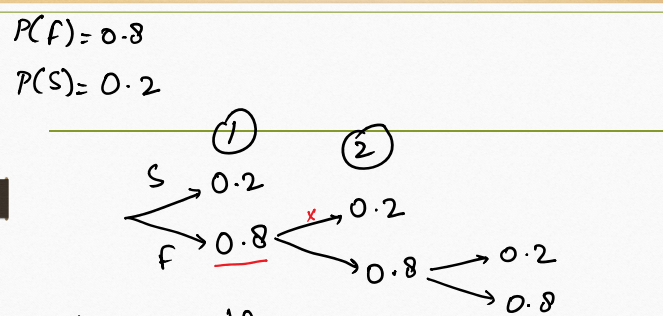 P(F)=0.8
P(S)=0.2
1 2
S 0.2
x 0.2
F 0.8
0.8 0.2
0.8